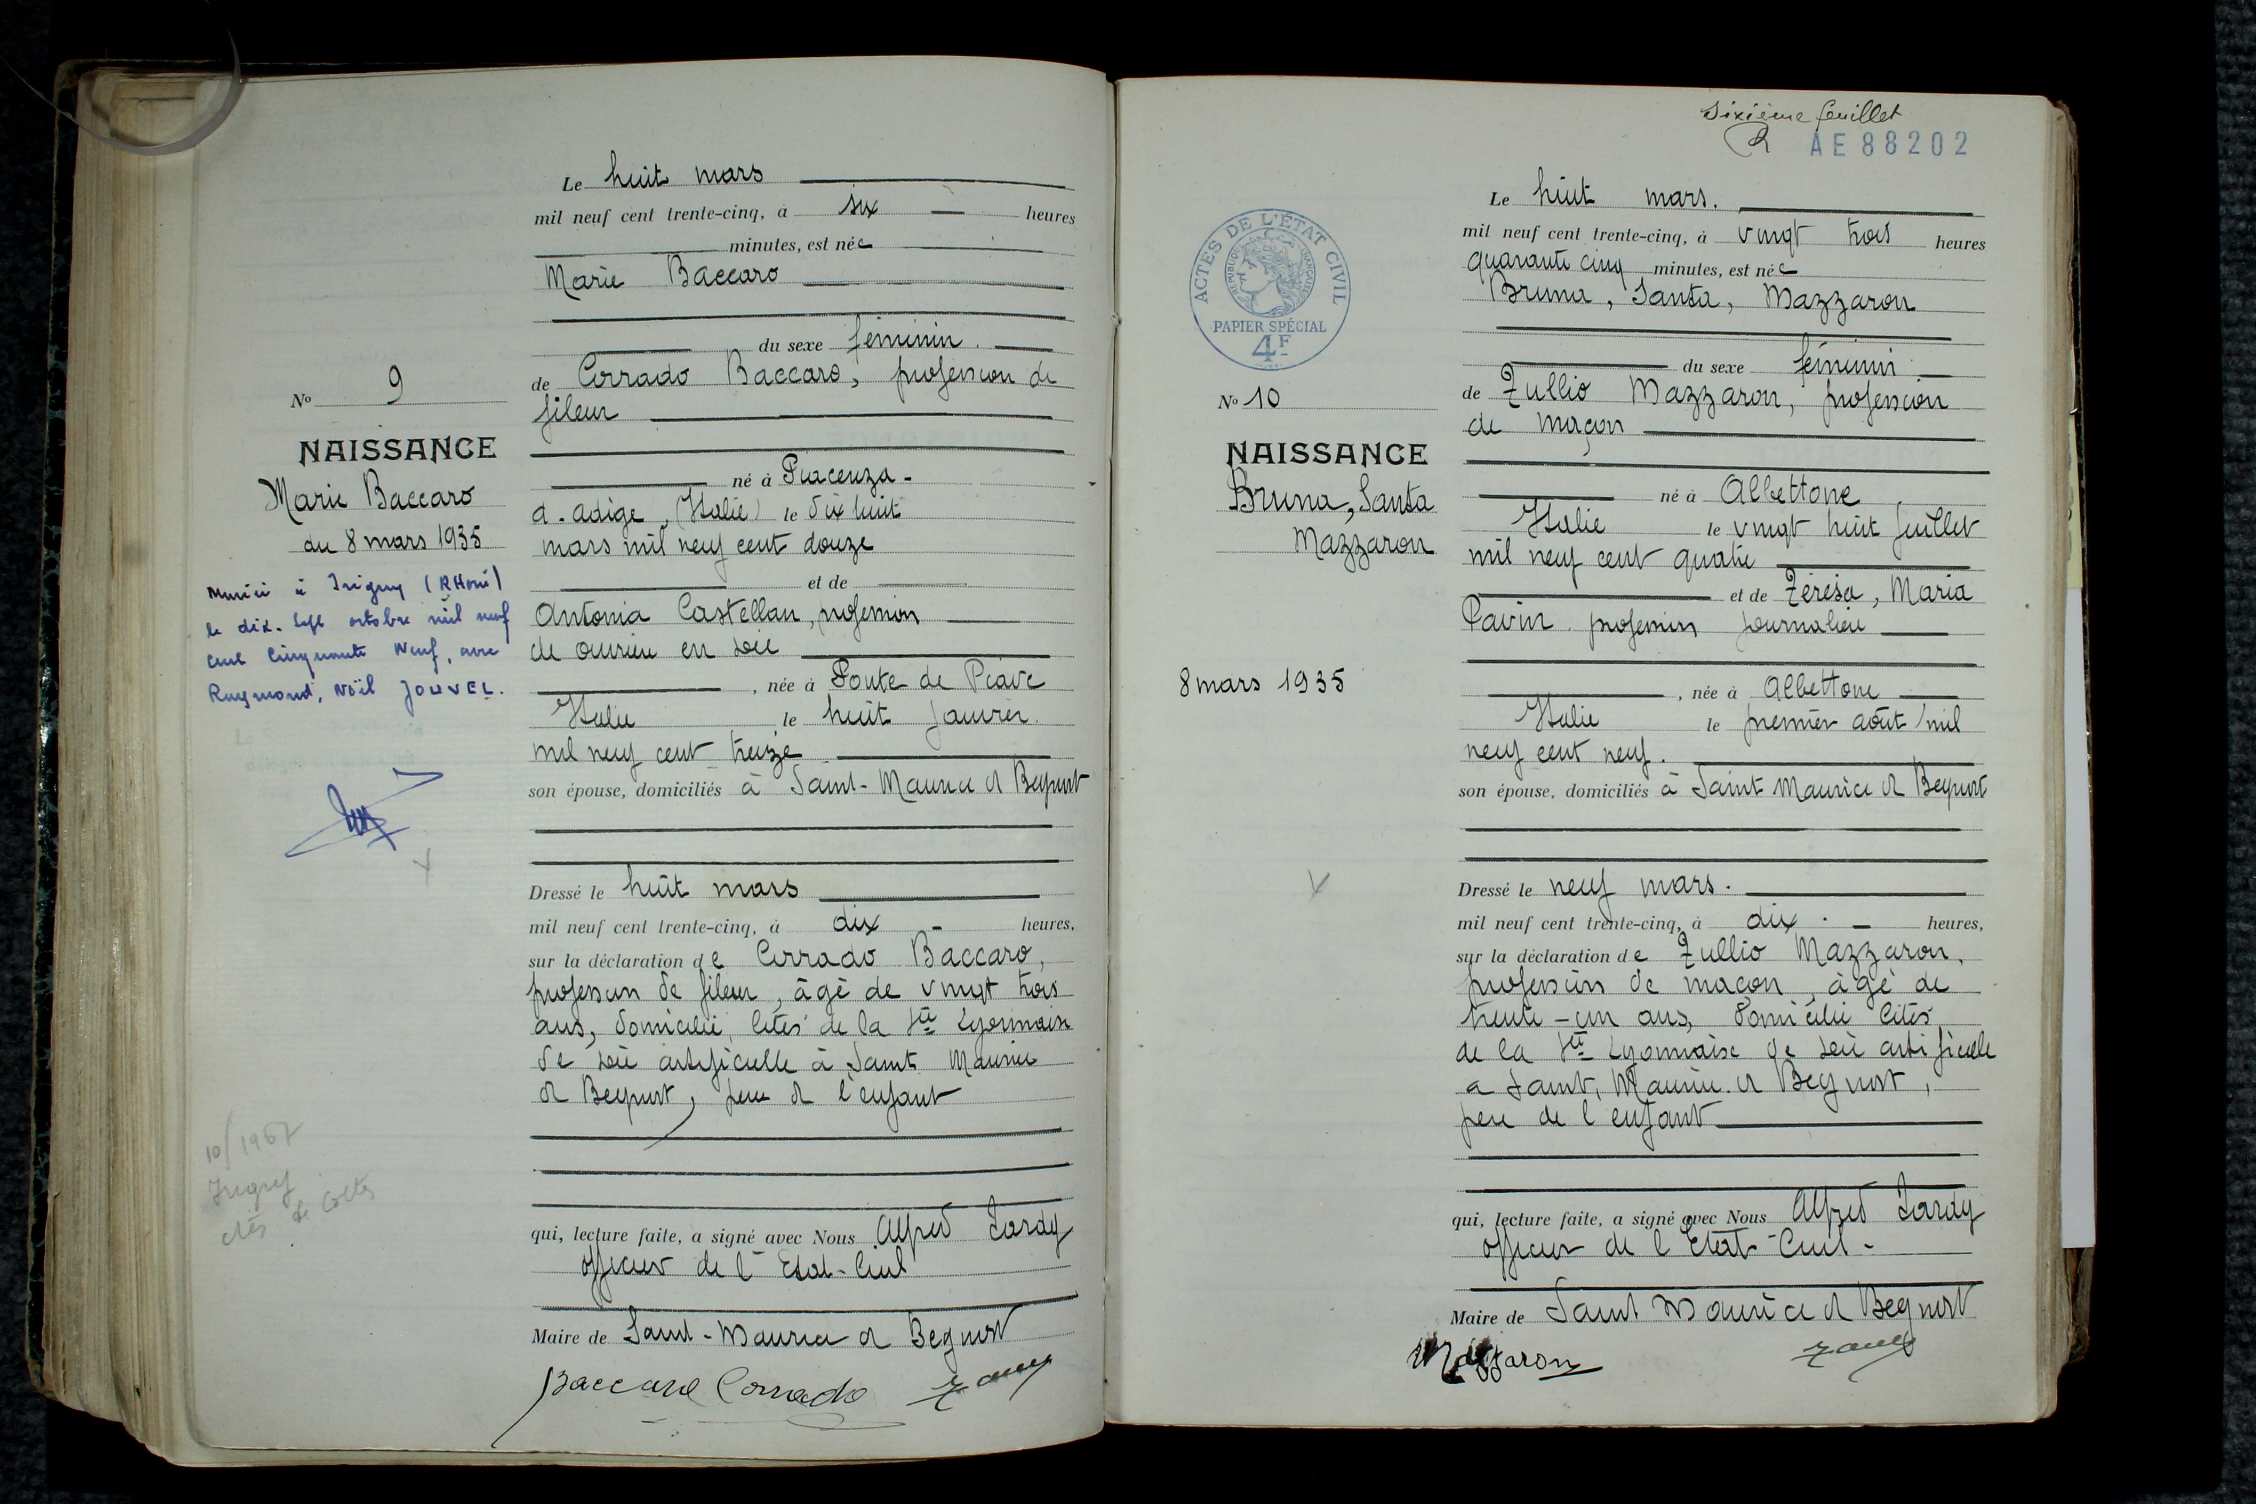 Le huit mars
mil neuf cent trente-cinq, à six heures
minutes, est née
Marie Baccaro
du sexe féminin.
de Corrado Baccaro, profession de
fileur
né à Piacenza-
d'adige, (Italie) le dix huit
mars mil neuf cent douze
et de
Antonia Castellan, profession
de ouvrière en soie
, née à Ponte de Piave
Italie le huit janvier
mil neuf cent treize
son épouse, domiciliés à Saint-Maurice de Beynost
Dressé le huit mars
mil neuf cent trente-cinq, à dix heures,
sur la déclaration de Corrado Baccaro,
profession de fileur, âgé de vingt trois
ans, domicilié, cités de la Sté Lyonnaise
de soie artificielle à Saint Maurice
de Beynost, père de l'enfant
qui, lecture faite, a signé avec Nous Alfred Tardy
officier de l'Etat-Civil
Maire de Saint-Maurice de Beynost
Baccaro Corrado Tardy
No 9
NAISSANCE
Marie Baccaro
du 8 mars 1935
Mariée à Irigny (Rhône)
le dix-sept octobre mil neuf
cent cinquante neuf, avec
Raymond, Noël JOUVEL.
10/1967
Irigny
Sixième feuillet
AE88202
ACTES DE L'ÉTAT CIVIL
RÉPUBLIQUE FRANÇAISE
PAPIER SPÉCIAL
4F
No 10
NAISSANCE
Bruna, Santa
Mazzaron
8 mars 1935
Le huit mars.
mil neuf cent trente-cinq, à vingt trois heures
quarante cinq minutes, est née
Bruna, Santa, Mazzaron
du sexe féminin
de Tullio Mazzaron, profession
de maçon
né à Albettone
Italie le vingt huit juillet
mil neuf cent quatre
et de Térésa, Maria
Pavin profession journalière
, née à Albettone
Italie le premier août mil
neuf cent neuf.
son épouse, domiciliés à Saint Maurice de Beynost
Dressé le neuf mars.
mil neuf cent trente-cinq, à dix heures,
sur la déclaration de Tullio Mazzaron,
profession de maçon, âgé de
trente-un ans, domicilié cités
de la Sté Lyonnaise de soie artificielle
a Saint, Maurice de Beynost,
père de l'enfant
qui, lecture faite, a signé avec Nous Alfred Tardy
officier de l'Etat-Civil-
Maire de Saint Maurice de Beynost
Mazzaron Tardy